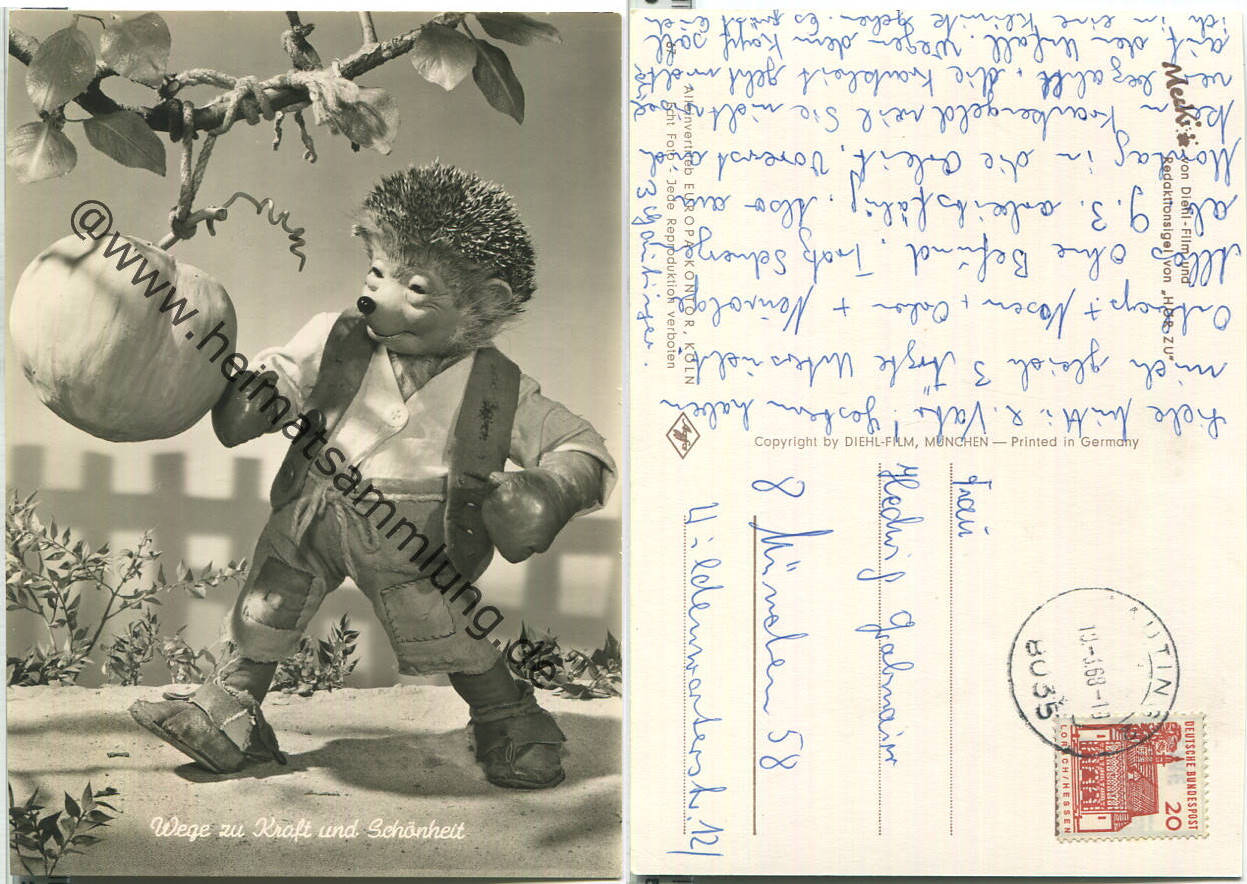 @www.heimatsammlung.de
Wege zu Kraft und Schönheit
Mecki
von Diehl-Film und
Redaktionsigel von „HÖR ZU"
Alleinvertrieb EUROPA-KONTOR, KÖLN
Echt Foto - Jede Reproduktion verboten
Copyright by DIEHL-FILM, MÜNCHEN — Printed in Germany
Liebe Mutti u. Vati! Gestern haben
mich gleich 3 Ärzte untersucht
Orthop. + Nasen, Ohren + Neurologe
Alles ohne Befund. Trotz Schmerzen
ab 9.3. arbeitsfähig. Also am
Montag in die Arbeit. Vorerst
kein Krankengeld weil Sie nicht
bezahlt, die Krankheit geht
auf den Unfall. Wegen dem Kopf soll
ich in eine Klinik gehen. Es grüßt Euch
Frau
Hedwig Grabmair
8 München 58
Wildenwarterstr. 12/
GAUTING
8035
DEUTSCHE BUNDESPOST
20
LORSCH/HESSEN